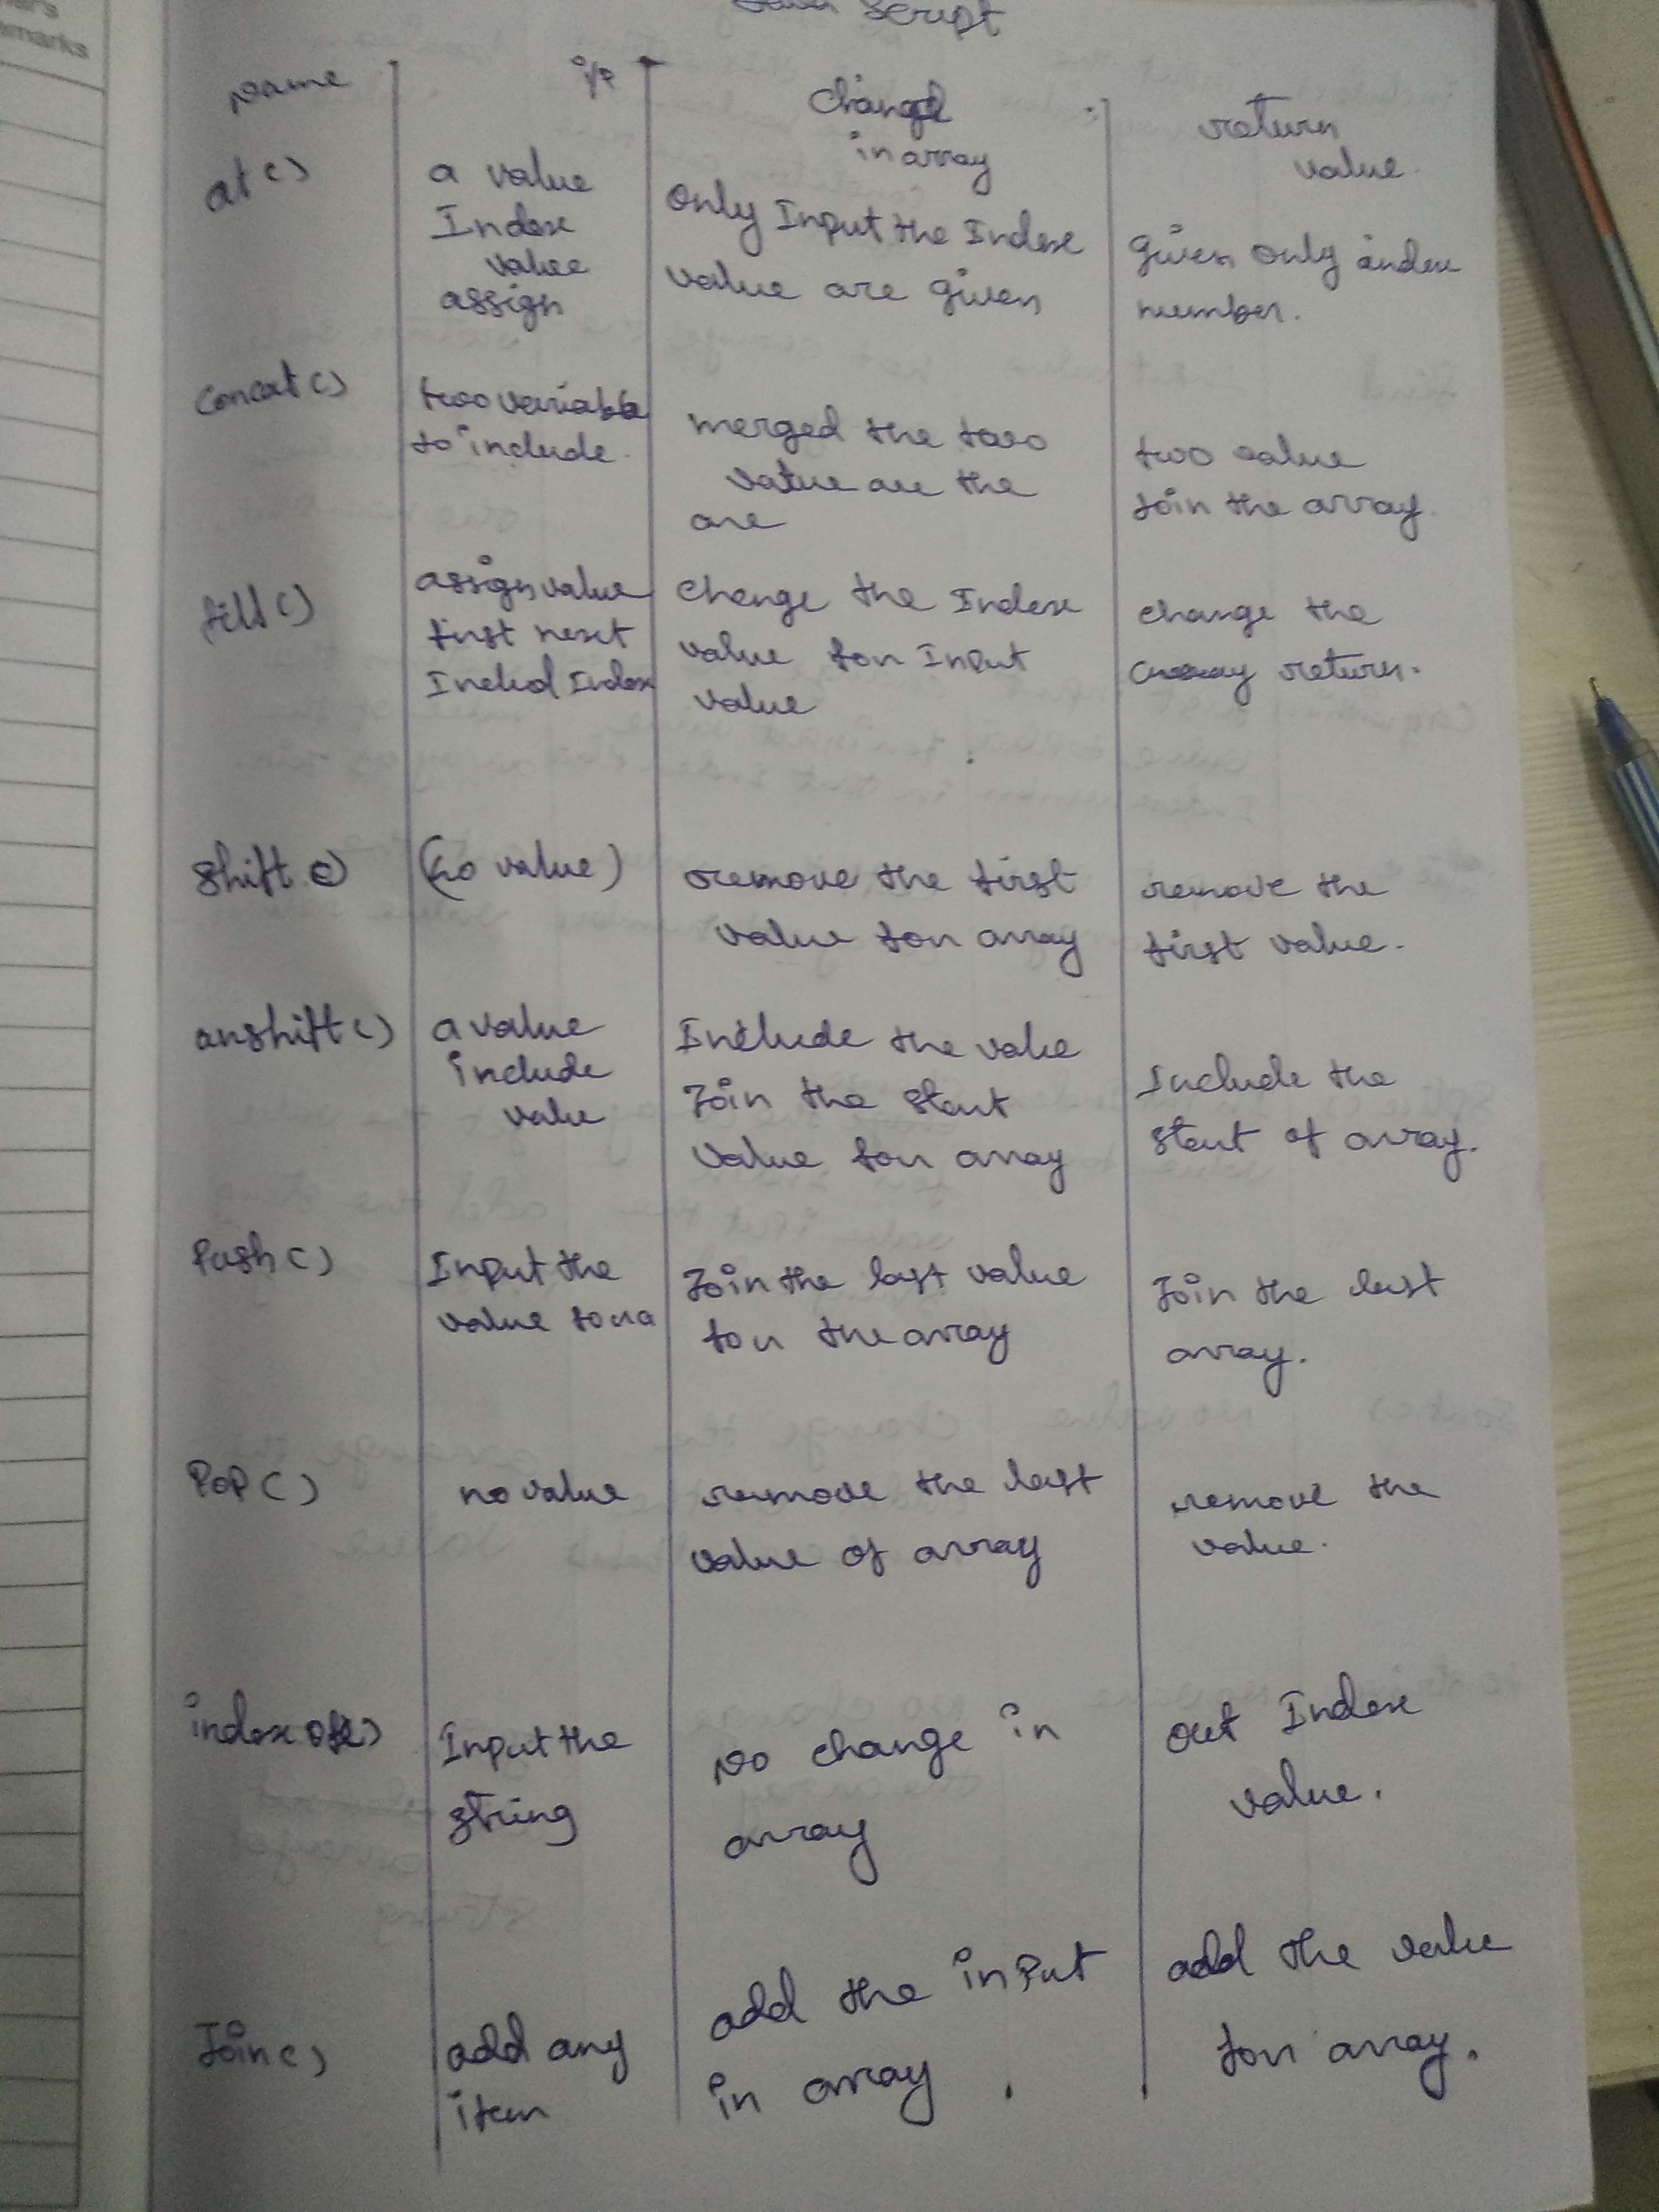 Java Script
Name i/p Change in array return value.
at() a value Index value assign Only Input the Index value are given given only index number.
concat() two variable to include. merged the two value are the are two value Join the array.
fill() assign value first next Includ Index change the Index value for Input value change the array return.
shift() (no value) remove the first value for array remove the first value.
anshift() a value include value Include the value Join the start value for array Include the start of array.
Push() Input the value for a Join the last value for the array Join the last array.
Pop() no value remove the last value of array remove the value.
index of() Input the string No change in array out Index value.
Join() add any item add the input in array. add the value for array.